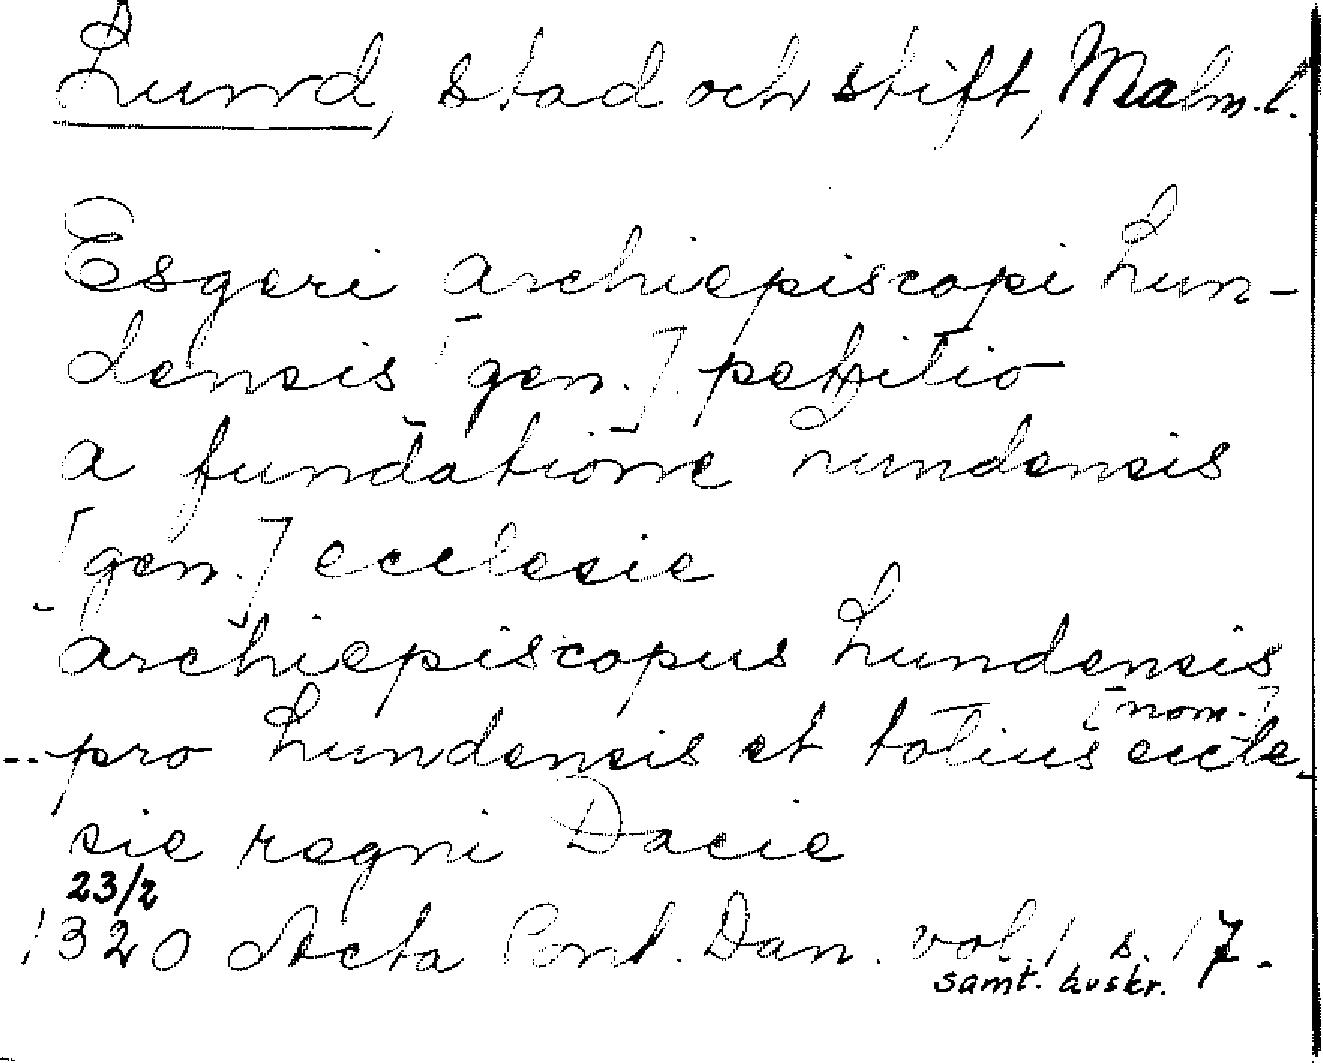 Lund, stad och stift, Malm.l.
Esgeri archiepiscopi Lun-
densis [gen.] petitio
a fundatione Lundensis
[gen.] ecclesie
archiepiscopus Lundensis
[nom.]
..pro Lundensis et totius eccle-
sie regni Dacie
23/2
1320 Acta Pont. Dan. vol. 1 s. 17.
samt. avskr.